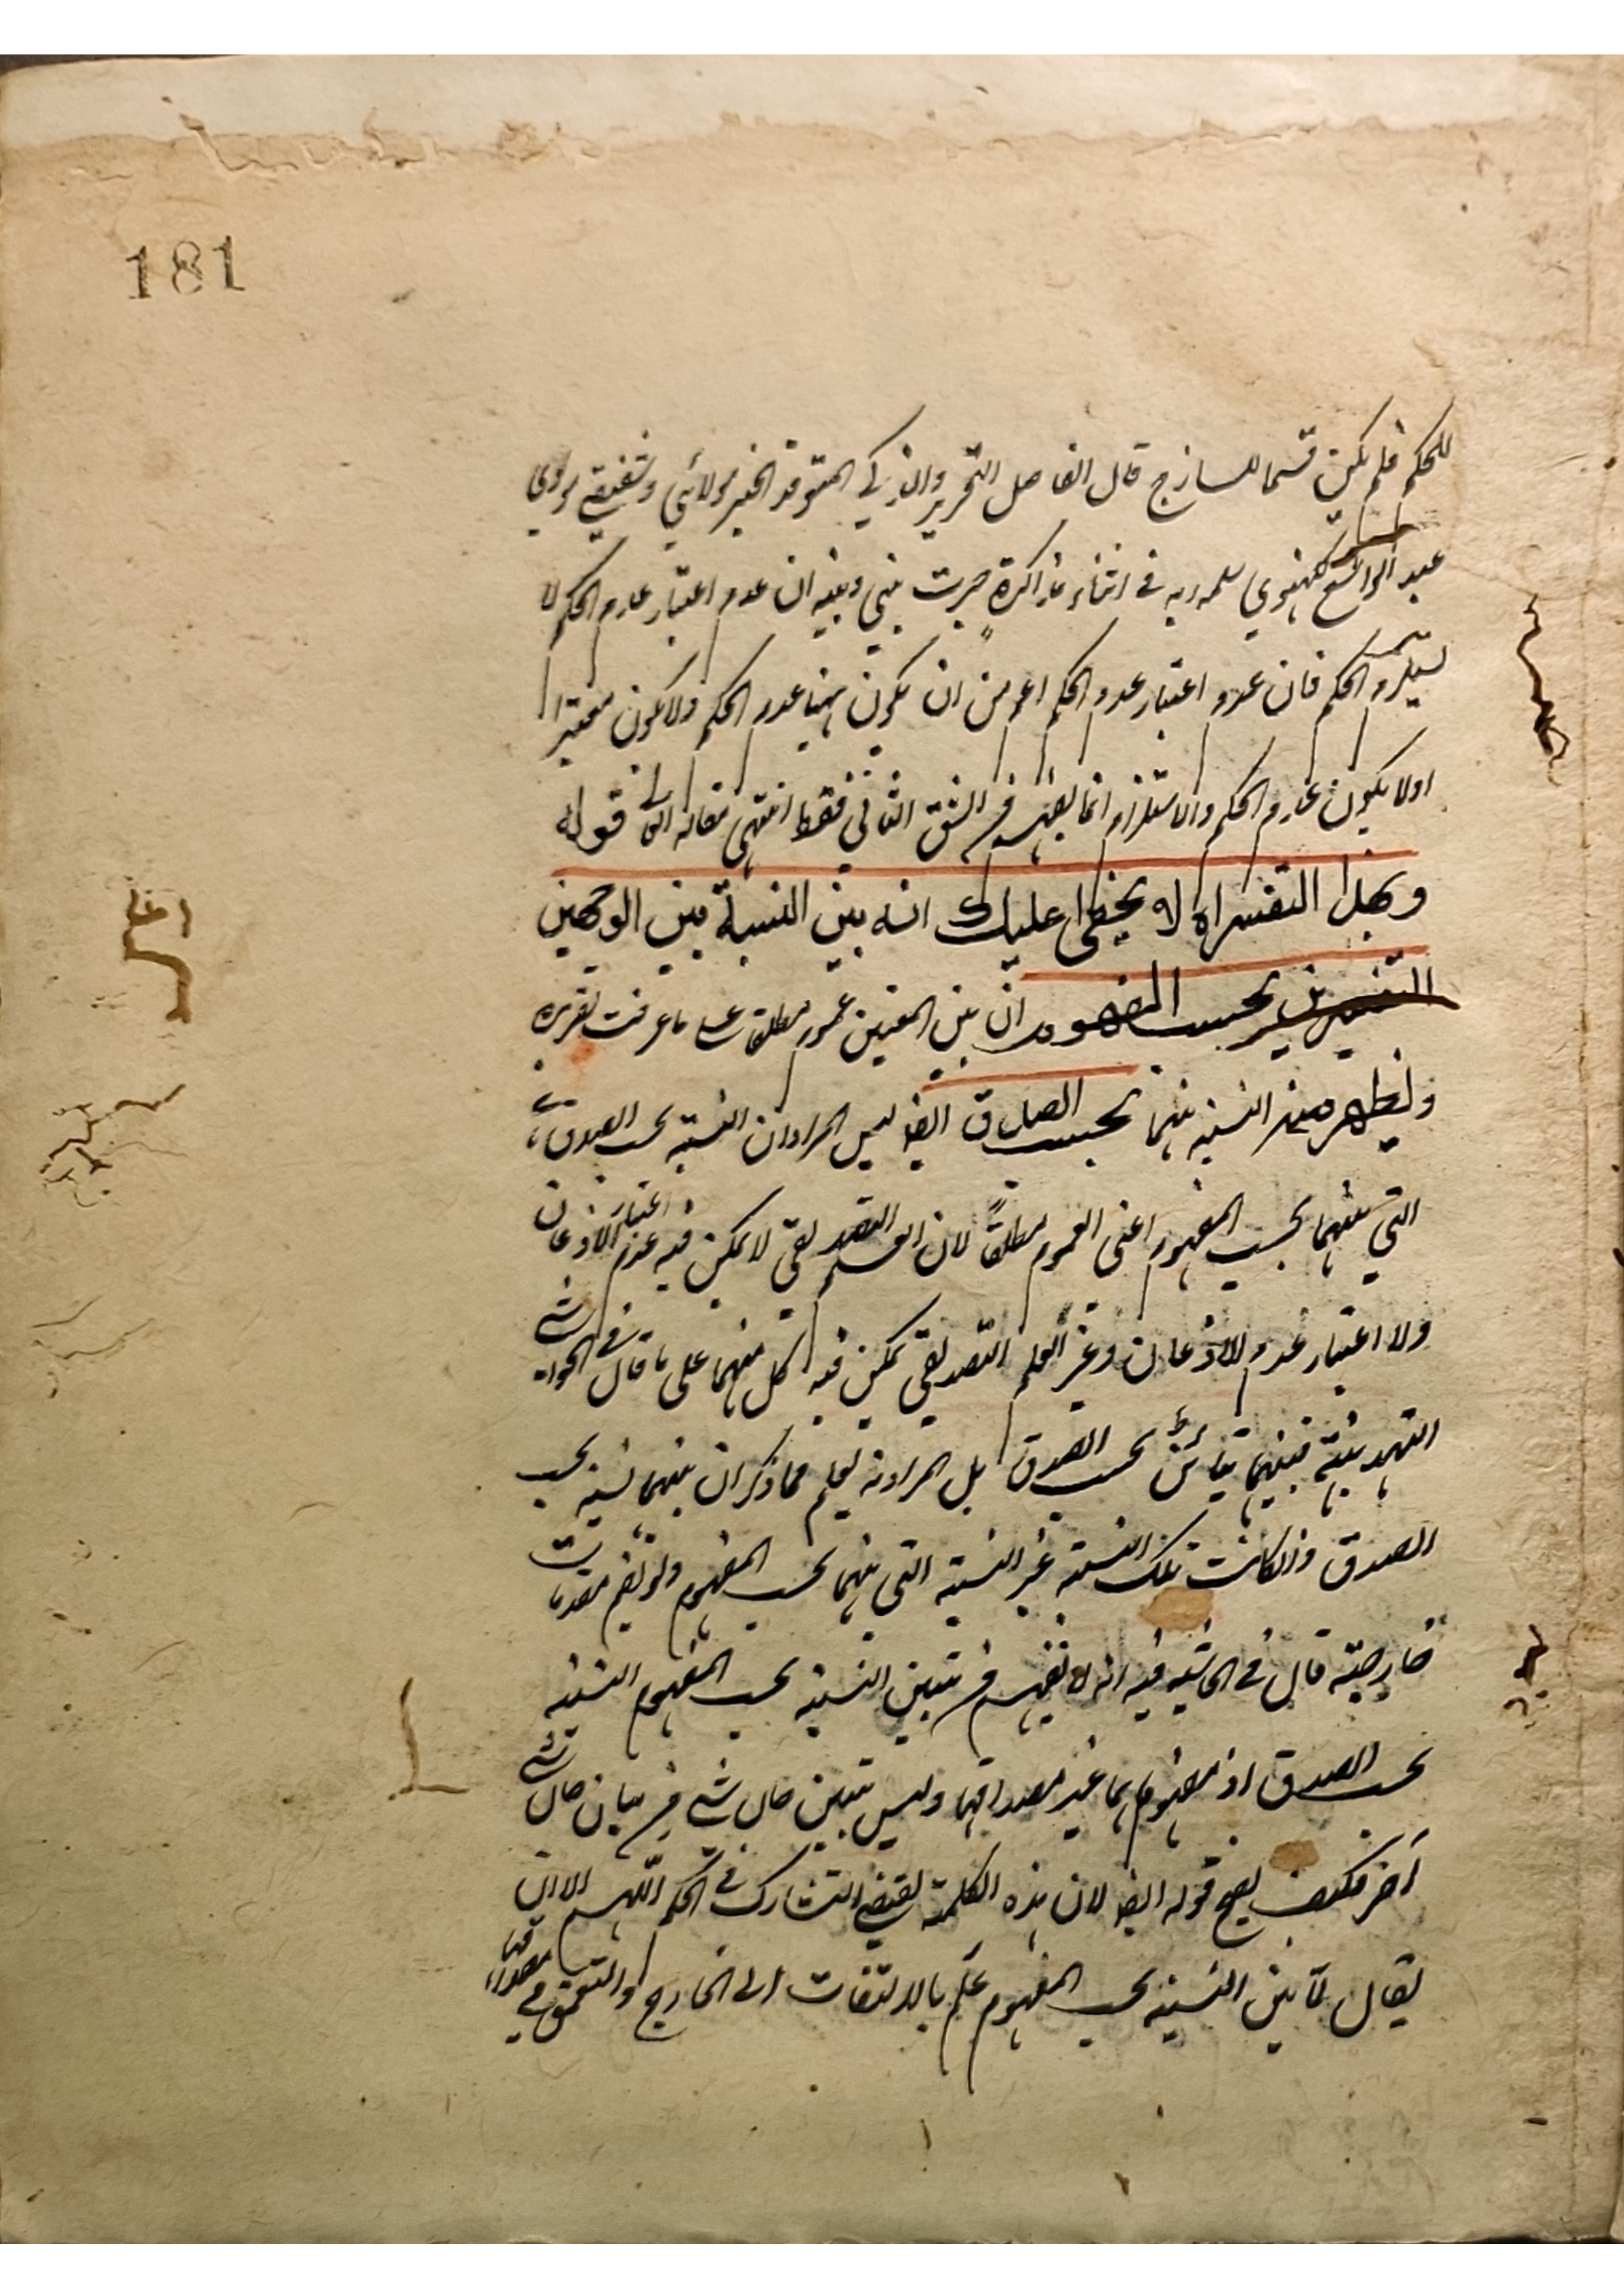 181
للحكم فلم يكن قسما للساذج قال الفاضل النحرير والذكي المتوقد الخبير مولائي وشفيقي مولوي
عبد الواسع لكهنوي سلمه ربه في اثناء مذاكرة جرت بيني وبينه ان عدم اعتبار عدم الحكم لا
يستلزم الحكم فان عدم اعتبار عدم الحكم اعم من ان يكون ههنا عدم الحكم ولا يكون معتبرا
اولا يكون عدم الحكم والاستلزام انما يفهم من الشق الثاني فقط انتهى مقاله العالي قوله
وبهذا التفسير اه لا يخفى عليك انه بين النسبة بين الوجهين
التفسيرين بحسب المفهوم ان بين المعنيين عموم مطلقا على ما عرفت تقريره
وليظهر منه النسبة بينهما بحسب الصدق ايضا ليس المراد ان النسبة بحسب الصدق
التي بينهما بحسب المفهوم اعني العموم مطلقاً لان العلم التصديقي لا يمكن فيه عدم اعتبار الاذعان
ولا اعتبار عدم الاذعان وغير العلم التصديقي يمكن فيه كل منهما على ما قال في الحواشي
التهذيبية فبينهما تباين بحسب الصدق بل المراد انه يعلم مما ذكر ان بينهما نسبة بحسب
الصدق وان كانت تلك النسبة غير النسبة التي بينهما بحسب المفهوم ولو بضم مقدمات
خارجية قال في الحاشية فيه انه لا يفهم من تبين النسبة بحسب المفهوم النسبة
بحسب الصدق اذ مفهوماهما غير مصداقهما وليس تبين حال شئ من بيان حال شئ
آخر فكيف يصح قوله ايضا لان هذه الكلمة يقتضي التشارك في الحكم اللهم الا ان
يقال لمّا بين النسبة بحسب المفهوم علم بالالتفات الى الخارج والتعمق في مصداقهما